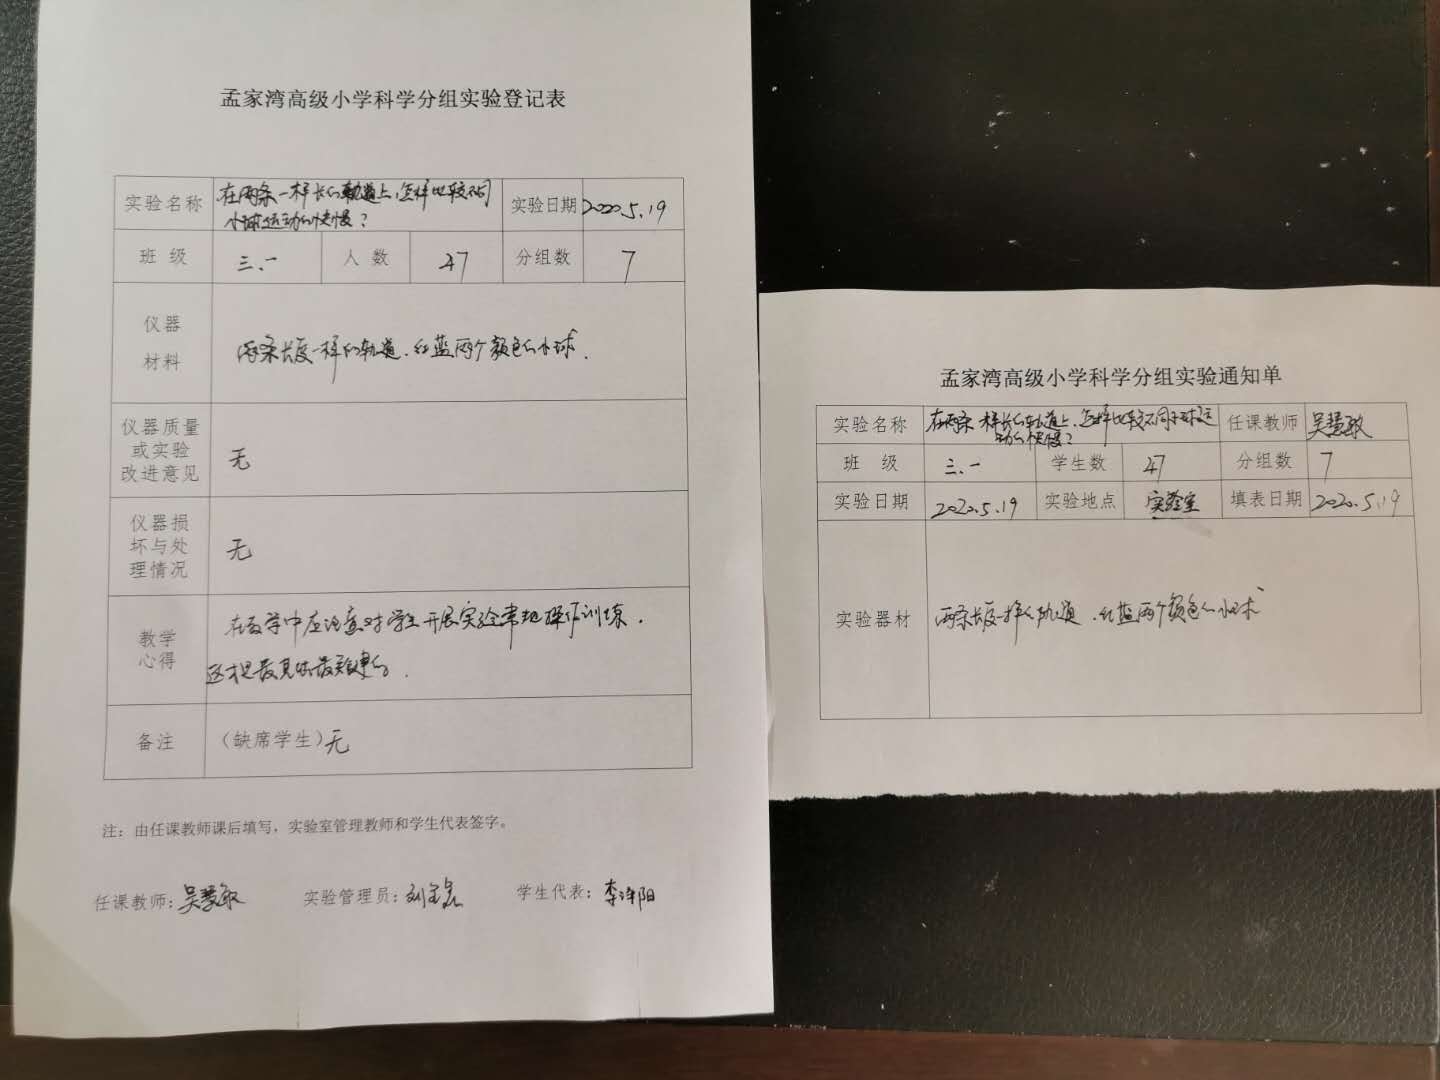 孟家湾高级小学科学分组实验登记表
实验名称 在两条一样长的轨道上,怎样比较不同 实验日期 2020.5.19
小球运动的快慢?
班 级 三.一 人 数 47 分组数 7
仪器
材料
两条长度一样的轨道.红蓝两个颜色的小球.
仪器质量
或实验
改进意见
无
仪器损
坏与处
理情况
无
教学
心得
在教学中应注意对学生开展实验常规操作训练.
这才是最具体最关键的.
备注 (缺席学生)无
注:由任课教师课后填写,实验室管理教师和学生代表签字。
任课教师:吴慧敏 实验管理员: 学生代表:
孟家湾高级小学科学分组实验通知单
实验名称 在两条一样长的轨道上,怎样比较不同小球运 任课教师 吴慧敏
动的快慢?
班 级 三.一 学生数 47 分组数 7
实验日期 2020.5.19 实验地点 实验室 填表日期 2020.5.19
实验器材 两条长度一样的轨道.红蓝两个颜色的小球